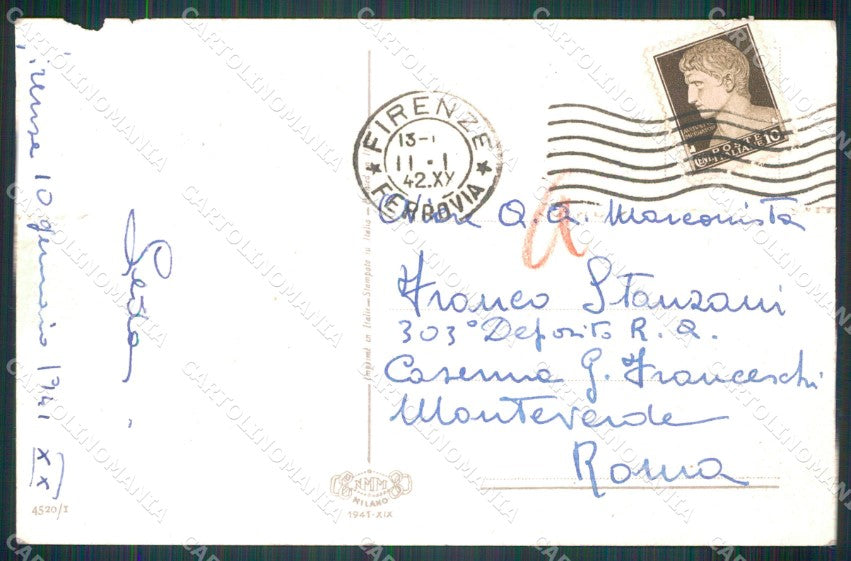 Firenze 10 gennaio 1941 XX
4520/I
Imprimé en Italie - Stampato in Italia
NMM
MILANO
1941-XIX
FIRENZE
13-
11.1
42.XX
FERROVIA
POSTE
ITALIANE 10
Q.Q. Marconista
Franco Stanzani
303° Deposito R.Q.
Caserma G. Franceschi
Monteverde
Roma
CARTOLINOMANIA